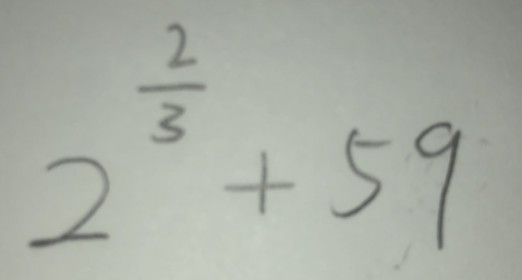 2^{\frac{2}{3}} + 59